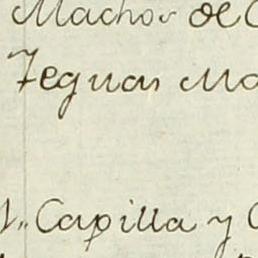 Machos de
Yeguas
Capilla y